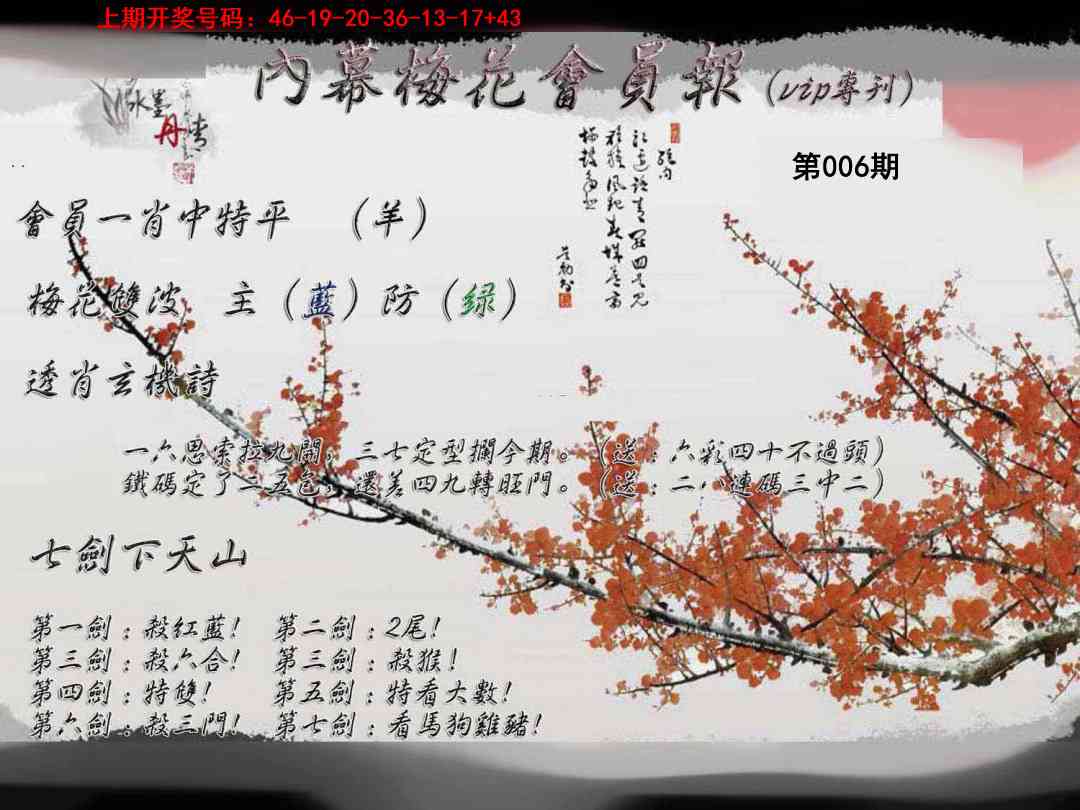 上期开奖号码：46-19-20-36-13-17+43
內幕梅花會員報（vip專刊）
水墨
丹青
第006期
會員一肖中特平　（羊）
梅花雙波　主（藍）防（绿）
透肖玄機詩
一六思索拉九開，三七定型攔今期。（送：六彩四十不過頭）
鐵碼定了二五色，還差四九轉旺門。（送：二八連碼三中二）
七劍下天山
第一劍：殺红藍！　第二劍：2尾！
第三劍：殺六合！　第三劍：殺猴！
第四劍：特雙！　第五劍：特看大數！
第六劍：殺三門！　第七劍：看馬狗雞豬！